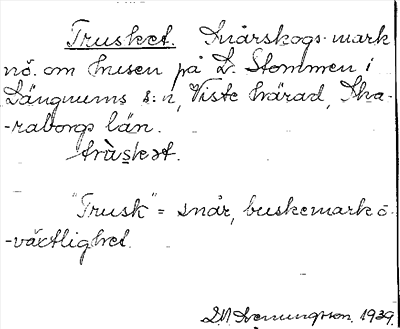 Trusket. Snårskogs-mark
nö. om husen på L. Stommen i
Längnums s:n, Viste härad, Ska-
-raborgs län.
"Trusk" = snår, buskemark o.
-växtlighet.
1939.